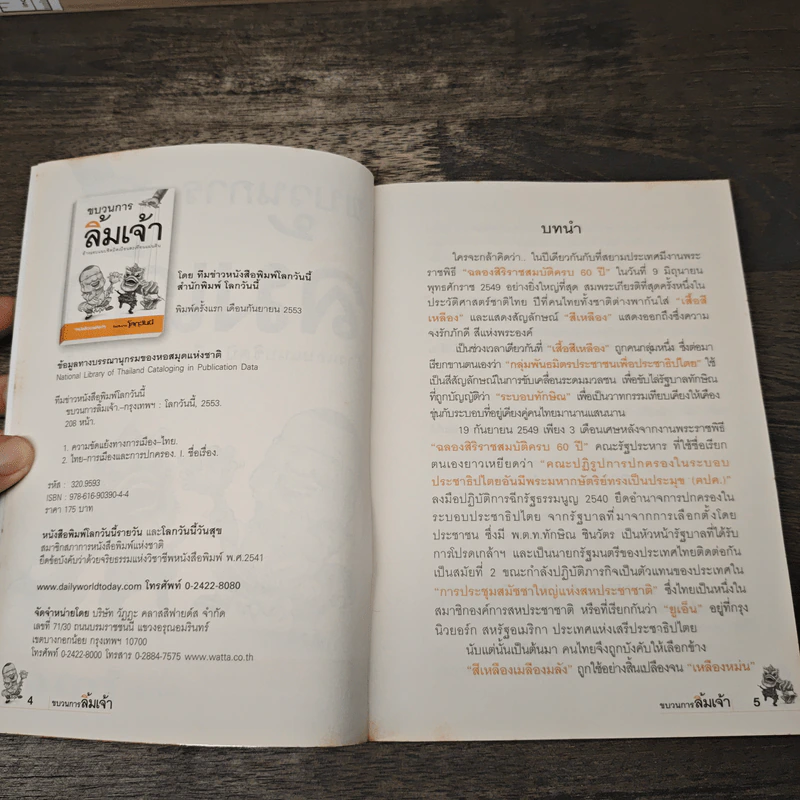 ขบวนการ
ลิ้มเจ้า
โลกวันนี้
โดย ทีมข่าวหนังสือพิมพ์โลกวันนี้
สำนักพิมพ์ โลกวันนี้
พิมพ์ครั้งแรก เดือนกันยายน 2553
ข้อมูลทางบรรณานุกรมของหอสมุดแห่งชาติ
National Library of Thailand Cataloging in Publication Data
ทีมข่าวหนังสือพิมพ์โลกวันนี้
ขบวนการลิ้มเจ้า.--กรุงเทพฯ : โลกวันนี้, 2553.
208 หน้า.
1. ความขัดแย้งทางการเมือง--ไทย.
2. ไทย--การเมืองและการปกครอง. I. ชื่อเรื่อง.
รหัส : 320.9593
ISBN : 978-616-90390-4-4
ราคา 175 บาท
หนังสือพิมพ์โลกวันนี้รายวัน และโลกวันนี้วันสุข
สมาชิกสภาการหนังสือพิมพ์แห่งชาติ
ยึดข้อบังคับว่าด้วยจริยธรรมแห่งวิชาชีพหนังสือพิมพ์ พ.ศ.2541
www.dailyworldtoday.com โทรศัพท์ 0-2422-8080
จัดจำหน่ายโดย บริษัท วัฏฏะ คลาสสิฟายด์ส จำกัด
เลขที่ 71/30 ถนนบรมราชชนนี แขวงอรุณอมรินทร์
เขตบางกอกน้อย กรุงเทพฯ 10700
โทรศัพท์ 0-2422-8000 โทรสาร 0-2884-7575 www.watta.co.th
4 ขบวนการลิ้มเจ้า
บทนำ
ใครจะกล้าคิดว่า.. ในปีเดียวกันกับที่สยามประเทศมีงานพระ
ราชพิธี "ฉลองสิริราชสมบัติครบ 60 ปี" ในวันที่ 9 มิถุนายน
พุทธศักราช 2549 อย่างยิ่งใหญ่ที่สุด สมพระเกียรติที่สุดครั้งหนึ่งใน
ประวัติศาสตร์ชาติไทย ปีที่คนไทยทั้งชาติต่างพากันใส่ "เสื้อสี
เหลือง" และแสดงสัญลักษณ์ "สีเหลือง" แสดงออกถึงซึ่งความ
จงรักภักดี สีแห่งพระองค์
เป็นช่วงเวลาเดียวกันที่ "เสื้อสีเหลือง" ถูกคนกลุ่มหนึ่ง ซึ่งต่อมา
เรียกขานตนเองว่า "กลุ่มพันธมิตรประชาชนเพื่อประชาธิปไตย" ใช้
เป็นสีสัญลักษณ์ในการขับเคลื่อนระดมมวลชน เพื่อขับไล่รัฐบาลทักษิณ
ที่ถูกบัญญัติว่า "ระบอบทักษิณ" เพื่อเป็นวาทกรรมเทียบเคียงให้เคือง
ขุ่นกับระบอบที่อยู่เคียงคู่คนไทยมานานแสนนาน
19 กันยายน 2549 เพียง 3 เดือนเศษหลังจากงานพระราชพิธี
"ฉลองสิริราชสมบัติครบ 60 ปี" คณะรัฐประหาร ที่ใช้ชื่อเรียก
ตนเองยาวเหยียดว่า "คณะปฏิรูปการปกครองในระบอบ
ประชาธิปไตยอันมีพระมหากษัตริย์ทรงเป็นประมุข (คปค.)"
ลงมือปฏิบัติการฉีกรัฐธรรมนูญ 2540 ยึดอำนาจการปกครองใน
ระบอบประชาธิปไตย จากรัฐบาลที่มาจากการเลือกตั้งโดย
ประชาชน ซึ่งมี พ.ต.ท.ทักษิณ ชินวัตร เป็นหัวหน้ารัฐบาลที่ได้รับ
การโปรดเกล้าฯ และเป็นนายกรัฐมนตรีของประเทศไทยติดต่อกัน
เป็นสมัยที่ 2 ขณะกำลังปฏิบัติภารกิจเป็นตัวแทนของประเทศใน
"การประชุมสมัชชาใหญ่แห่งสหประชาชาติ" ซึ่งไทยเป็นหนึ่งใน
สมาชิกองค์การสหประชาชาติ หรือที่เรียกกันว่า "ยูเอ็น" อยู่ที่กรุง
นิวยอร์ก สหรัฐอเมริกา ประเทศแห่งเสรีประชาธิปไตย
นับแต่นั้นเป็นต้นมา คนไทยจึงถูกบังคับให้เลือกข้าง
"สีเหลืองเมลืองมลัง" ถูกใช้อย่างสิ้นเปลืองจน "เหลืองหม่น"
ขบวนการลิ้มเจ้า 5